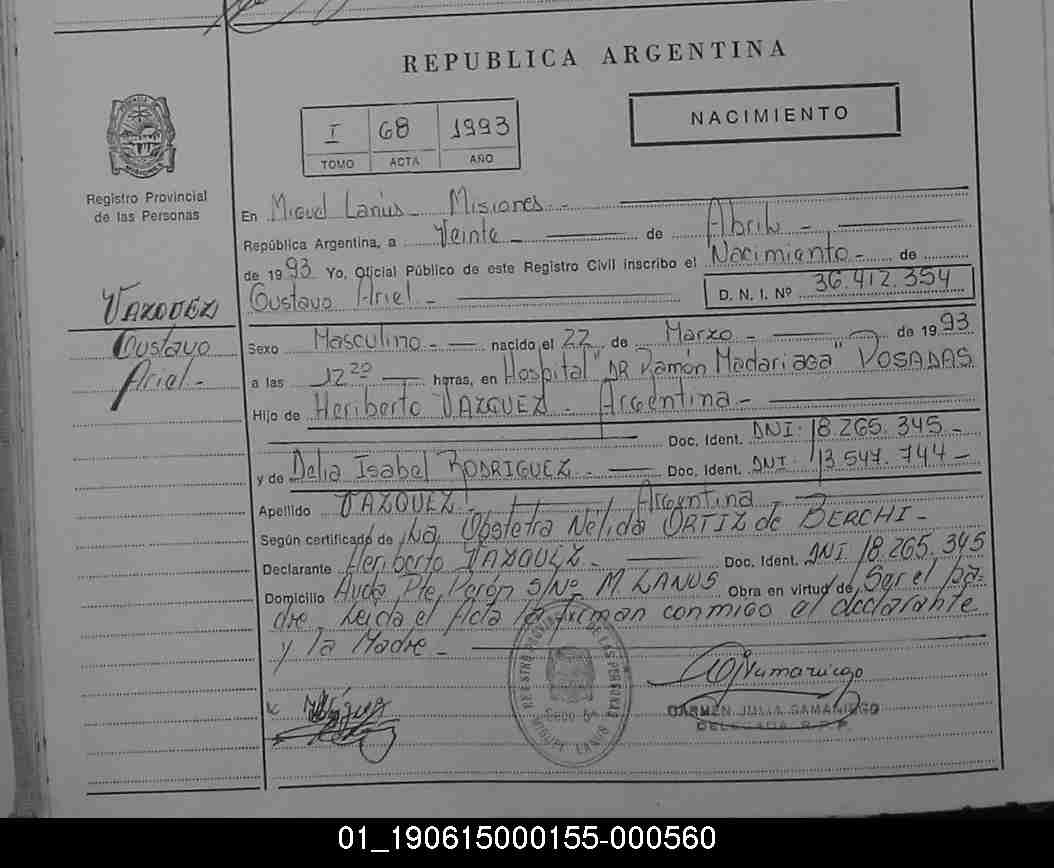 REPUBLICA ARGENTINA
I 68 1993
TOMO ACTA AÑO
NACIMIENTO
Registro Provincial
de las Personas
VAZQUEZ
Gustavo
Ariel.-
En Miguel Lanús - Misiones.-
República Argentina, a Veinte - de Abril -
de 1993 Yo, Oficial Público de este Registro Civil inscribo el Nacimiento - de
Gustavo Ariel - D. N. I. Nº 36.412.354
Sexo Masculino - nacido el 22 de Marzo - de 1993
a las 12 20 horas, en Hospital "DR Ramón Madariaga" POSADAS
Hijo de Heriberto VAZQUEZ - Argentina -
Doc. Ident. DNI. 18.265.345 -
y de Delia Isabel RODRIGUEZ - Doc. Ident. DNI. 13.547.744 -
Apellido VAZQUEZ Argentina -
Según certificado de la Obstetra Nélida ORTIZ de BERCHI -
Declarante Heriberto VAZQUEZ - Doc. Ident. DNI 18.265.345
Domicilio Avda Pte. Perón S/Nº M. LANUS Obra en virtud de Ser el pa-
dre, Leida el Acta la firman conmigo el declarante
y la Madre -
REGISTRO PROVINCIAL DE LAS PERSONAS
MIGUEL LANUS
CARMEN JULIA SAMANIEGO
DELEGADA R.P.P.
01_190615000155-000560